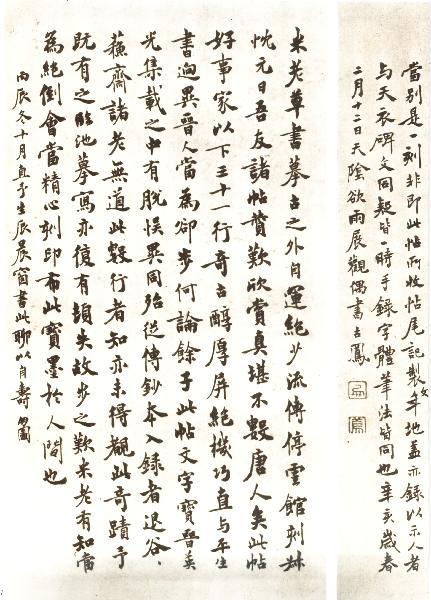 當別是一刻非即此帖所收帖尾記製文年地蓋亦錄以示人者
与天衣碑文同疑皆一時手錄字體筆法皆同也辛亥歲春
二月十二日天陰欲雨展觀偶書占鳳
米老草書摹古之外自運絕少流傳停雲館刻
忱元日吾友諸帖贊歎欣賞真堪不數唐人矣此帖
好事家以下三十一行奇古醇厚屏絕機巧直与平生
書迥異晉人當為卻步何論餘子此帖文字寶晉英
光集載之中有脫悮異同殆從傳鈔本入錄者退谷
蘇齋諸老無道此數行者知亦未得覩此奇蹟予
既有之臨池摹寫亦復有頓失故步之歎米老有知當
為絕倒會當精心刻印布此寶墨於人間也
丙辰冬十月直予生辰晨窗書此聊以自壽